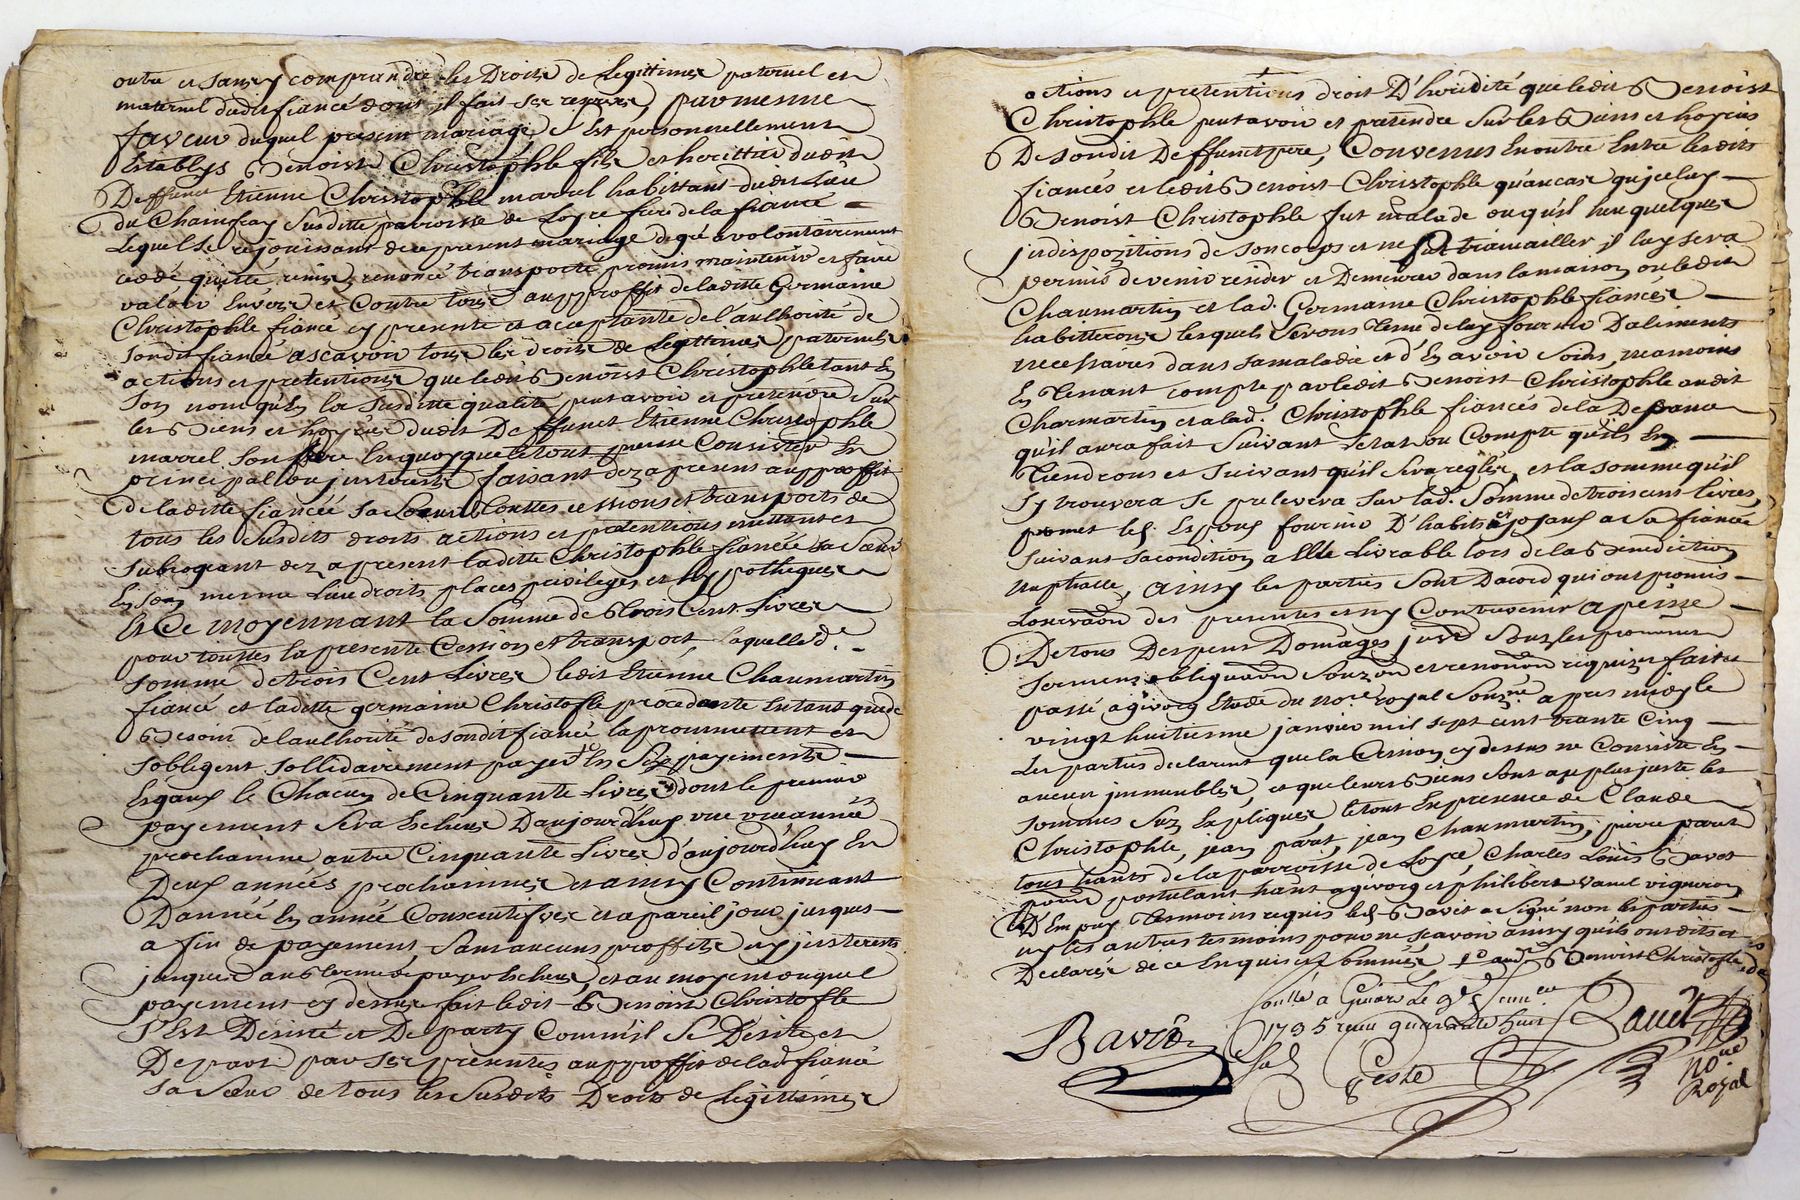 outre et sans y comprendre les Droits de Legittimes paternel et
maternel dudit fiancé dont il fait ses reserves, par mesme
faveur duquel present mariage s'Est personnellement
Establys Benoist Christophle fils et herittier dudit
Deffunct Etienne Christophle marrel habittant dudit Lieu
du Chamfray susditte parroisse de Loyre frere de la fiancée
Lequel se rejouissant de ce present mariage de gré a volontairement
ceddé quitté remis renoncé transporté promis maintenir et faire
valoir Envers et Contre tous au proffit de laditte Germaine
Christophle fiancé cy presente et acceptante de l'authorité de
sondit fiancé ascavoir tous les droits de Legittimes paternels
actions et pretentions que ledit Benoist Christophle tant En
son nom qu'En la susditte qualité peut avoir et pretendre Sur
les Biens et hoyries dudit Deffunct Etienne Christophle
marrel son pere En quoy que le tout puisse Consister En
principal ou justerests faisant dez a present au proffit
de laditte fiancée sa Soeur touttes cessions et transports de
tous les susdits droits actions et pretentions mettant et
subrogeant dez a present laditte Christophle fiancée sa Soeur
En son mesme Lieu droits places privileges et hypotheques
Et Ce moyennant la Somme de trois Cent Livres
pour touttes la presente Cession et transport, laquelle d.e
somme de trois Cent Livres ledit Etienne Chaumartin
fiancé et laditte germaine Christofle procedante Entant que de
Besoin de l'authorité de sondit fiancé la prommettent et
s'obligent sollidairement payer En Six payements
Esgaux le Chacun de Cinquante Livres dont le premier
payement sera Escheus D'aujourd'huy une année
prochainne autre Cinquante Livres d'aujourd'huy En
Deux années prochainnes et ainsy Continuant
D'année En année Consecutifves et a pareil jour jusques
a fin de payement, sans aucuns proffits ny justerests
jusques aus terme de payer Escheus, et au moyen duquel
payement cy dessus fait ledit Benoist Christofle
s'Est Désisté et Departy Comm'il se Desiste et
Depart par Ses presentes au proffit de lad. fiancé
sa Soeur de tous les susdits Droits de Legittimes
actions et pretentions droit D'heridité que ledit Benoist
Christophle peut avoir et pretendre Sur les Biens et hoyries
De sondit Deffunct pere, Convenus En outre Entre lesdits
fiancés et ledit Benoist Christophle qu'en cas qu'jceluy
Benoist Christophle fut malade ou qu'il heu quelques
jndispozitions de son corps et ne put travailler jl luy sera
permis de venir resider et Demeurer dans la maison ou ledit
Chaumartin et lad. Germaine Christophle fiancés
habitteront lesquels seront Tenu de luy fournir D'aliments
necessaires dans sa maladie et d'En avoir Soins, neamoins
En Tenant compte par ledit Benoist Christophle audit
Charmartin et a lad. Christophle fiancés de la Depance
qu'il aura fait Suivant l'etat ou Compte qu'ils En
Tiendront et suivant qu'il sera reglér, et la somme qu'il
s'y trouvera se prelevera sur lad. somme de trois cens livres,
promet led. Espoux fournir D'habits et joyaux a sa fiancée
suivant sa condition a Elle Livrable lors de la Benediction
nuptialle, ainsy les parties sont Dacord qui ont promis
L'observaon des presentes et n'y Contrevenir a peine
De tous Despens Domages justs sous les promesses
sermens obligaon soumon et renonon requizes fait et
passé a givorg Etude du no.re royal Souz.né apres midy le
vingt huitieme janvier mil sept cent trante Cinq
Les parties declarent que la Cession cy dessus ne Consiste En
aucun jmmeubles, et que leurs Biens sont au plus juste les
sommes sus Expliquez le tout En presence de Claude
Christophle, jean parat, jean Chaumartin, pierre parat
tous habitts de la parroisse de Loyre Charles Louis Bavet
pour postulant habitt a givorg et philibert vanel vigneron
D'Empuy Tesmoins requis led. Bavet a signé non les parties
ny les autres tesmoins pour ne scavoir ainsy qu'ils ont dits et
Declarés de ce Enquis et sommés
Benoist Christofle
1735 recu quarante huit
no.re
Royal